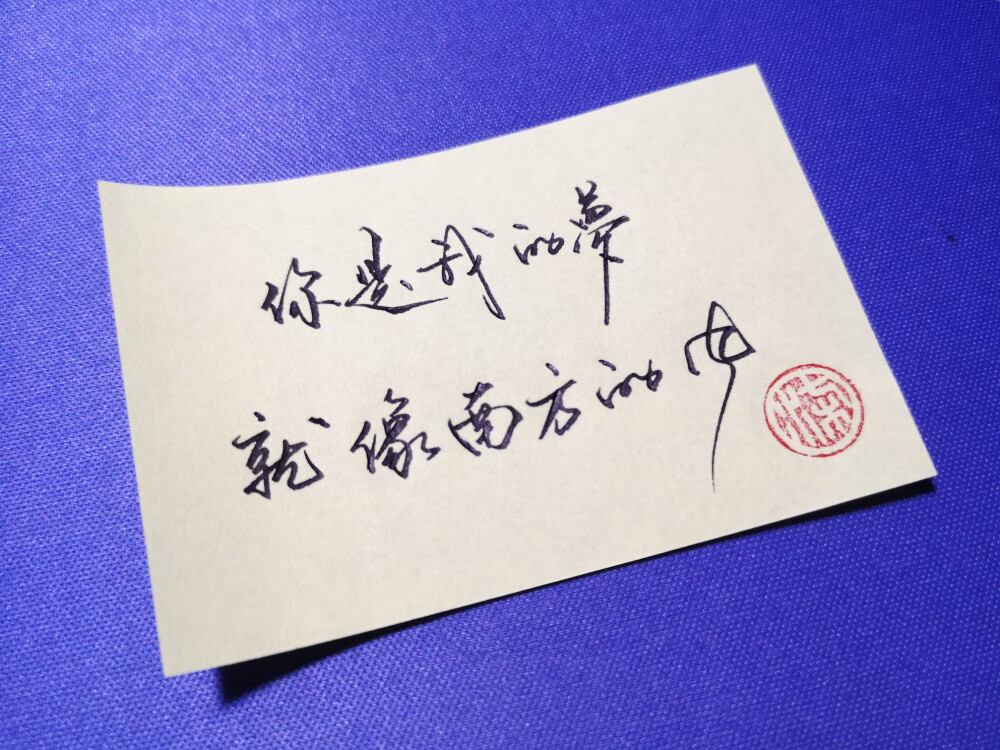 你是我的夢
就像南方的